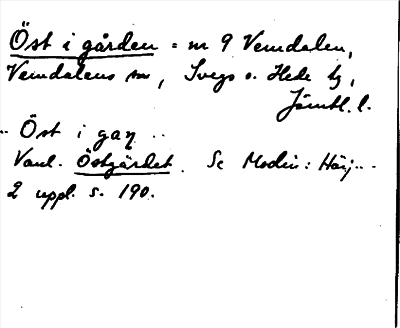 Öst i gården = nr 9 Vemdalen,
Vemdalens sn, Svegs o. Hede tg,
Jämtl. l.
.. Öst i gaɳ ..
Vanl. Östgärdet. Se Modin: Härj...
2 uppl. s. 190.